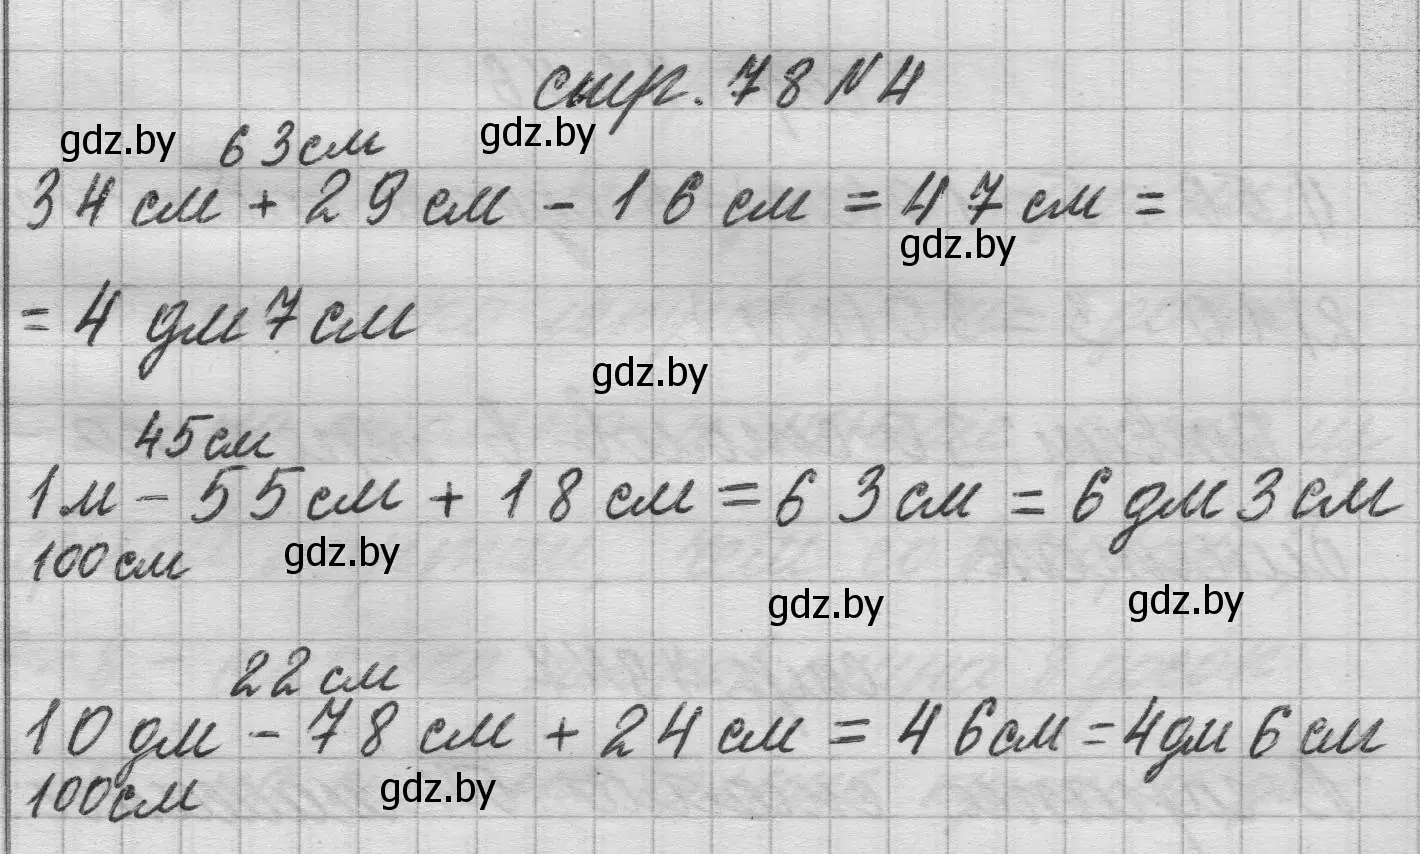 стр. 78 № 4
gdz.by 63 см gdz.by
34 см + 29 см - 16 см = 47 см =
gdz.by
= 4 дм 7 см
gdz.by
45 см
1 м - 55 см + 18 см = 63 см = 6 дм 3 см
100 см gdz.by
gdz.by gdz.by
22 см
10 дм - 78 см + 24 см = 46 см = 4 дм 6 см
100 см gdz.by